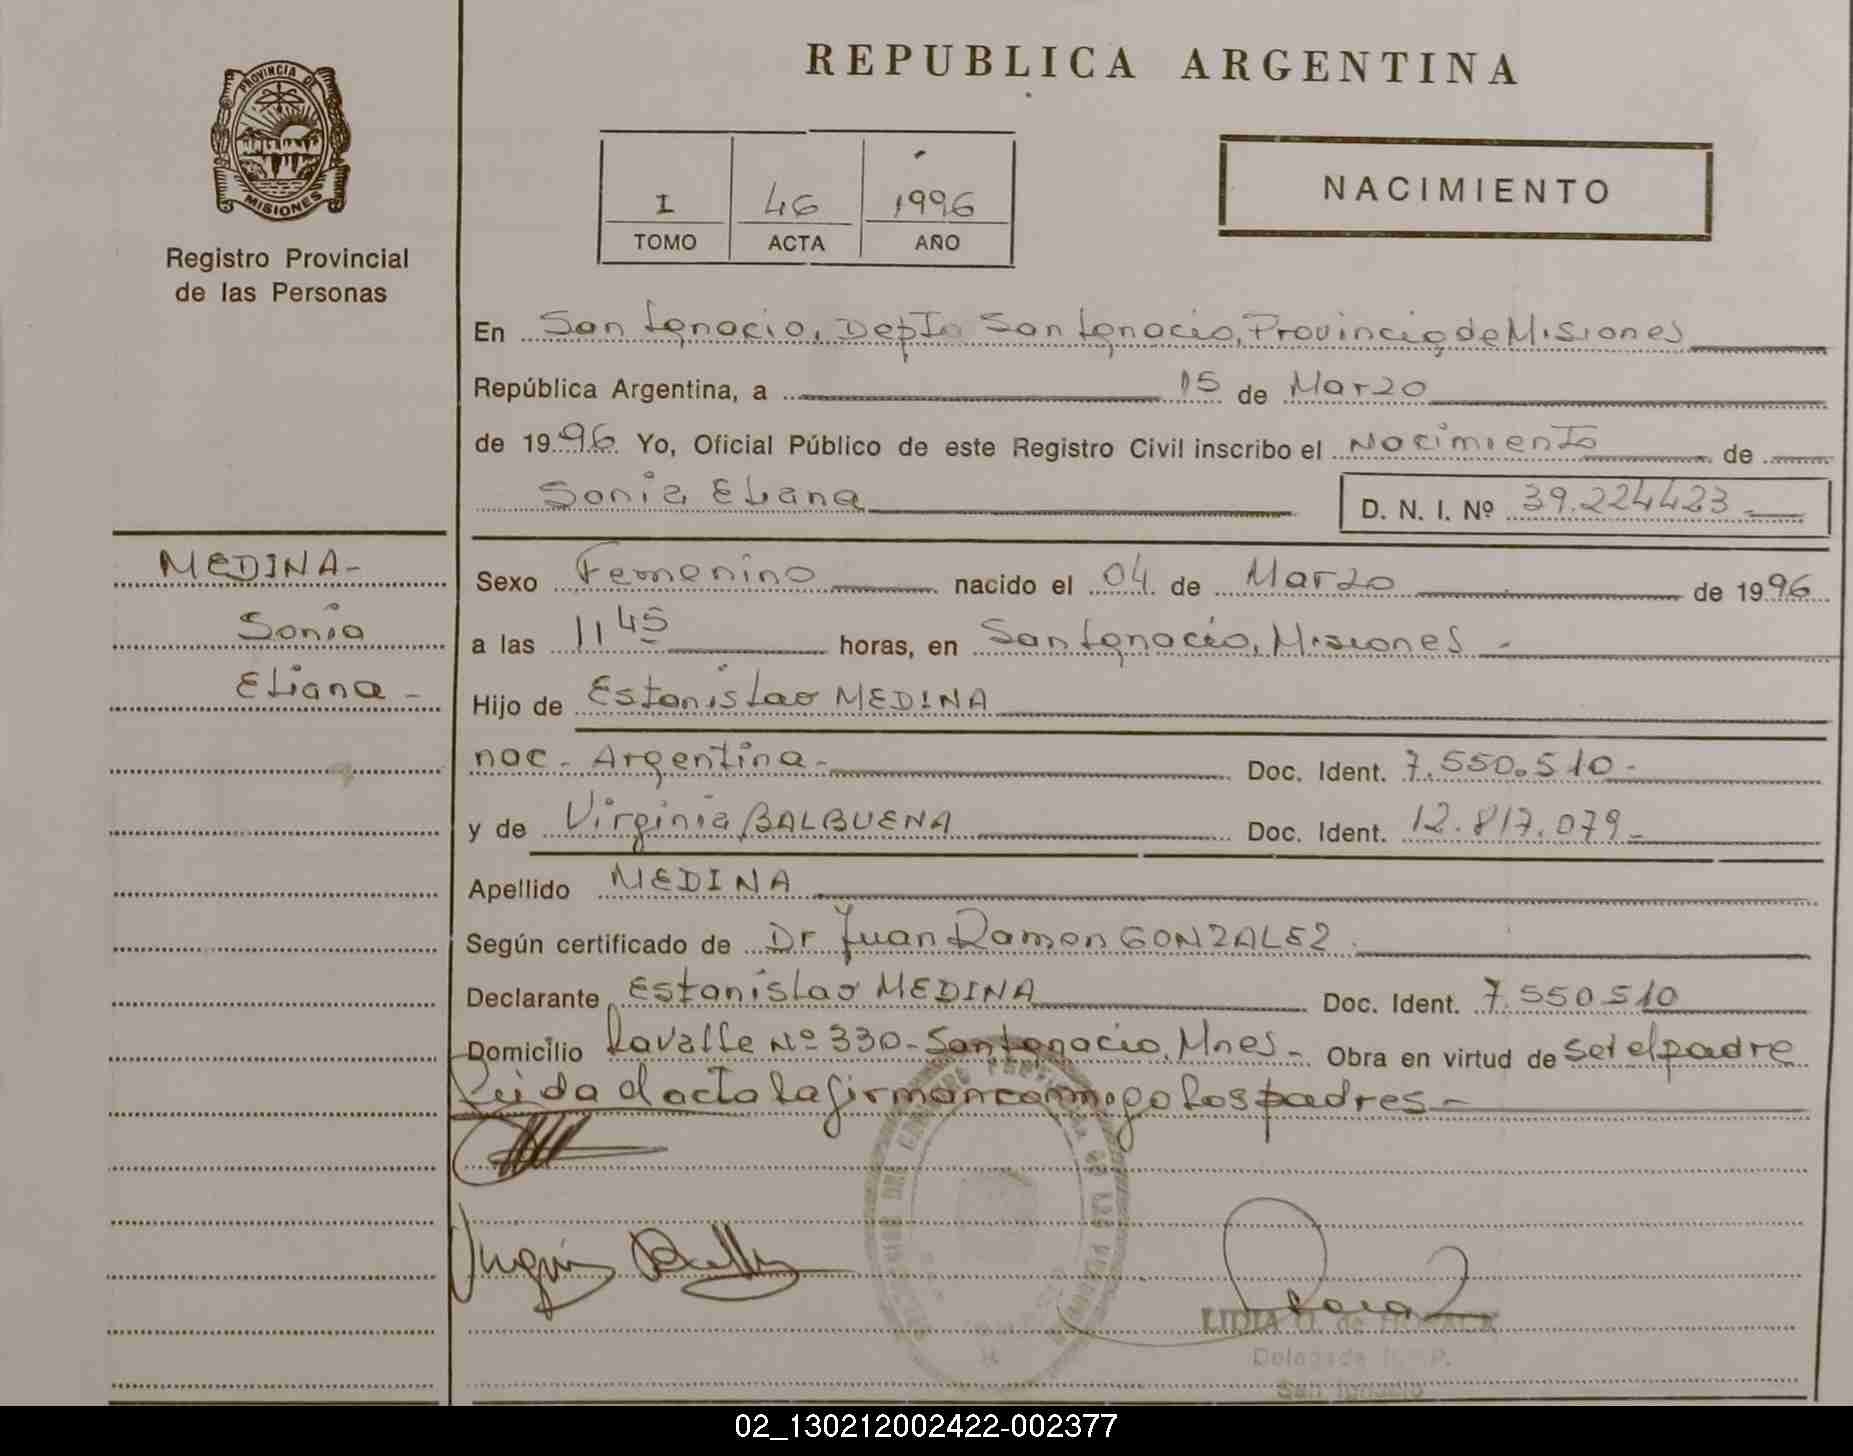 PROVINCIA DE
MISIONES
Registro Provincial
de las Personas
MEDINA-
Sonia
Eliana -
REPUBLICA ARGENTINA
I 46 1996
TOMO ACTA AÑO
NACIMIENTO
En San Ignacio, Depto San Ignacio, Provincia de Misiones
República Argentina, a 15 de Marzo
de 1996 Yo, Oficial Público de este Registro Civil inscribo el Nacimiento de
Sonia Eliana D. N. I. Nº 39.224423-
Sexo Femenino nacido el 04 de Marzo de 1996
a las 11 45 horas, en San Ignacio, Misiones -
Hijo de Estanislao MEDINA
nac - Argentina - Doc. Ident. 7.550.510-
y de Virginia BALBUENA Doc. Ident. 12.817.079-
Apellido MEDINA
Según certificado de Dr Juan Ramon GONZALEZ
Declarante Estanislao MEDINA Doc. Ident. 7.550510
Domicilio Lavalle Nº 330- San Ignacio, Mnes- Obra en virtud de ser el padre
Leida el acta la firman conmigo los padres-
LIDIA
Delegada
San Ignacio
02_130212002422-002377